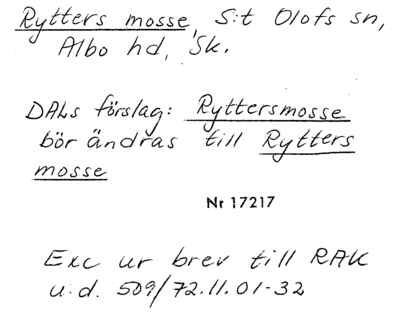 Rytters mosse, S:t Olofs sn,
Albo hd, Sk.
DALs förslag: Ryttersmosse
bör ändras till Rytters
mosse
Nr 17217
Exc ur brev till RAK
u.d. 509/72.11.01-32